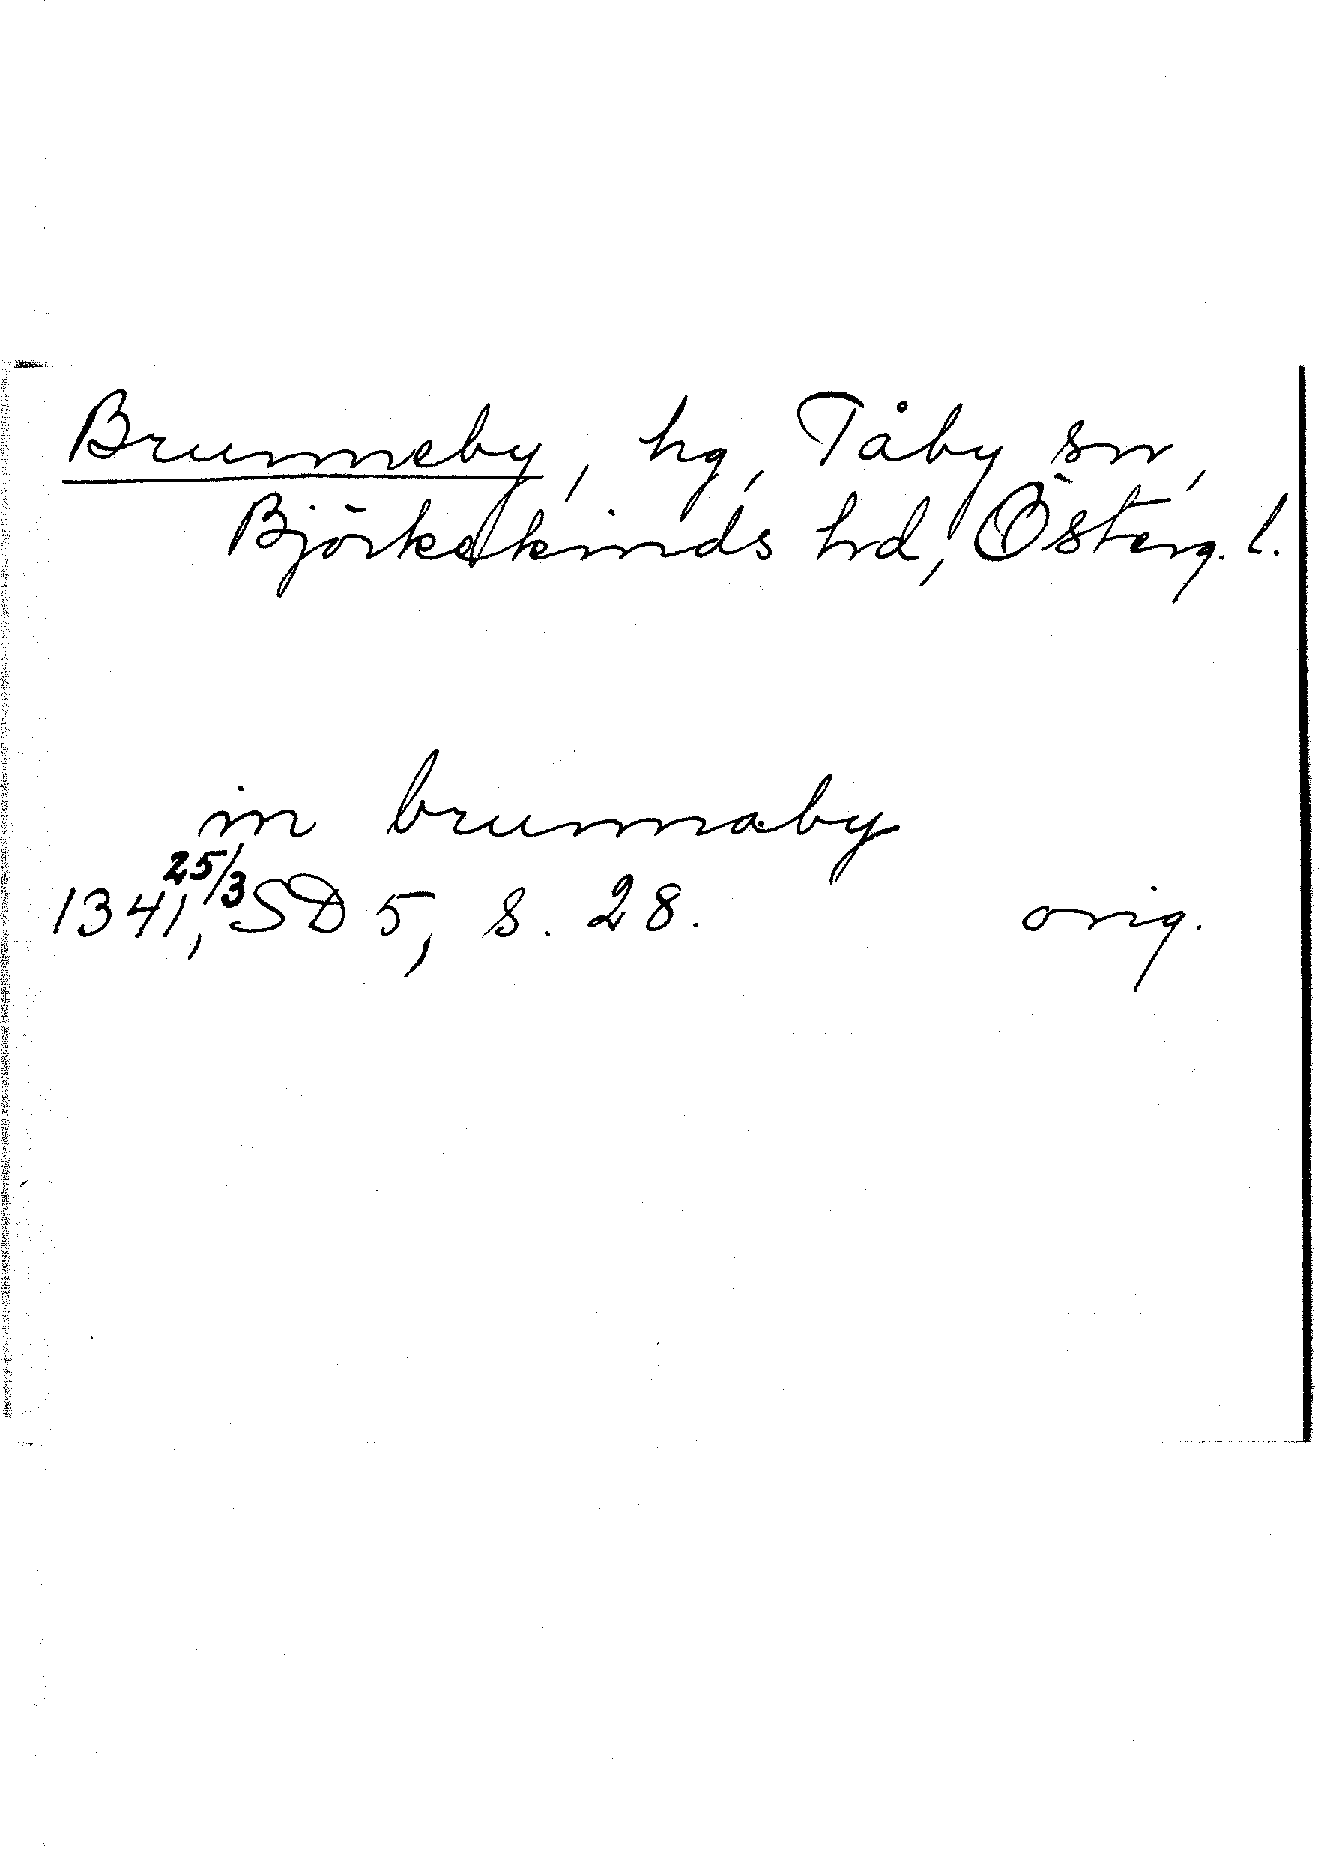 Brunneby, hg, Tåby sn,
Björkekinds hd, Österg. l.
in brunnaby
1341, 25/3 SD 5, s. 28. orig.